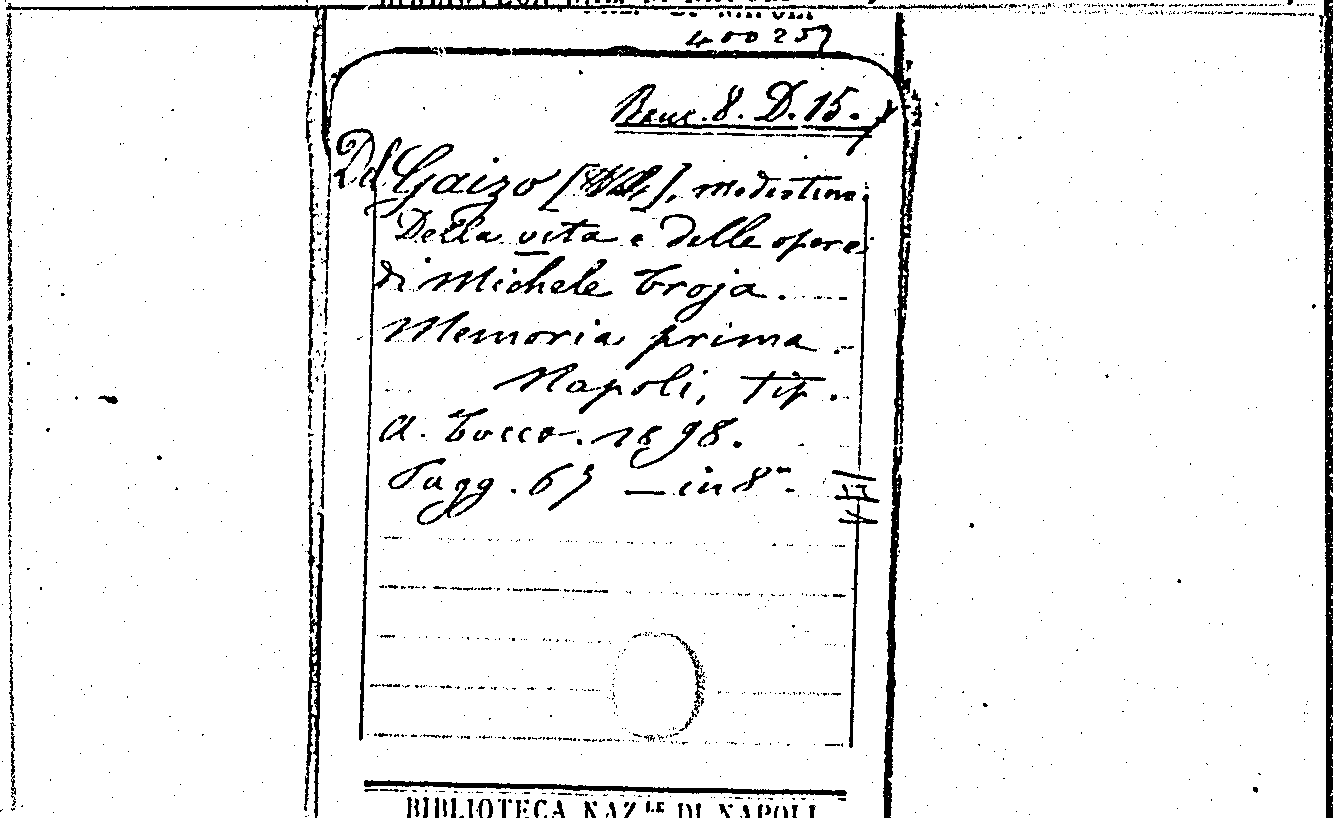 400257
Benc. 8. D. 15.
Del Gaizo [ ], Modestino.
Della vita e delle opere
di Michele Troja.
Memoria prima.
Napoli, tip.
A. Tocco. 1898.
Pagg. 67 — in 8°.
BIBLIOTECA NAZ.LE DI NAPOLI